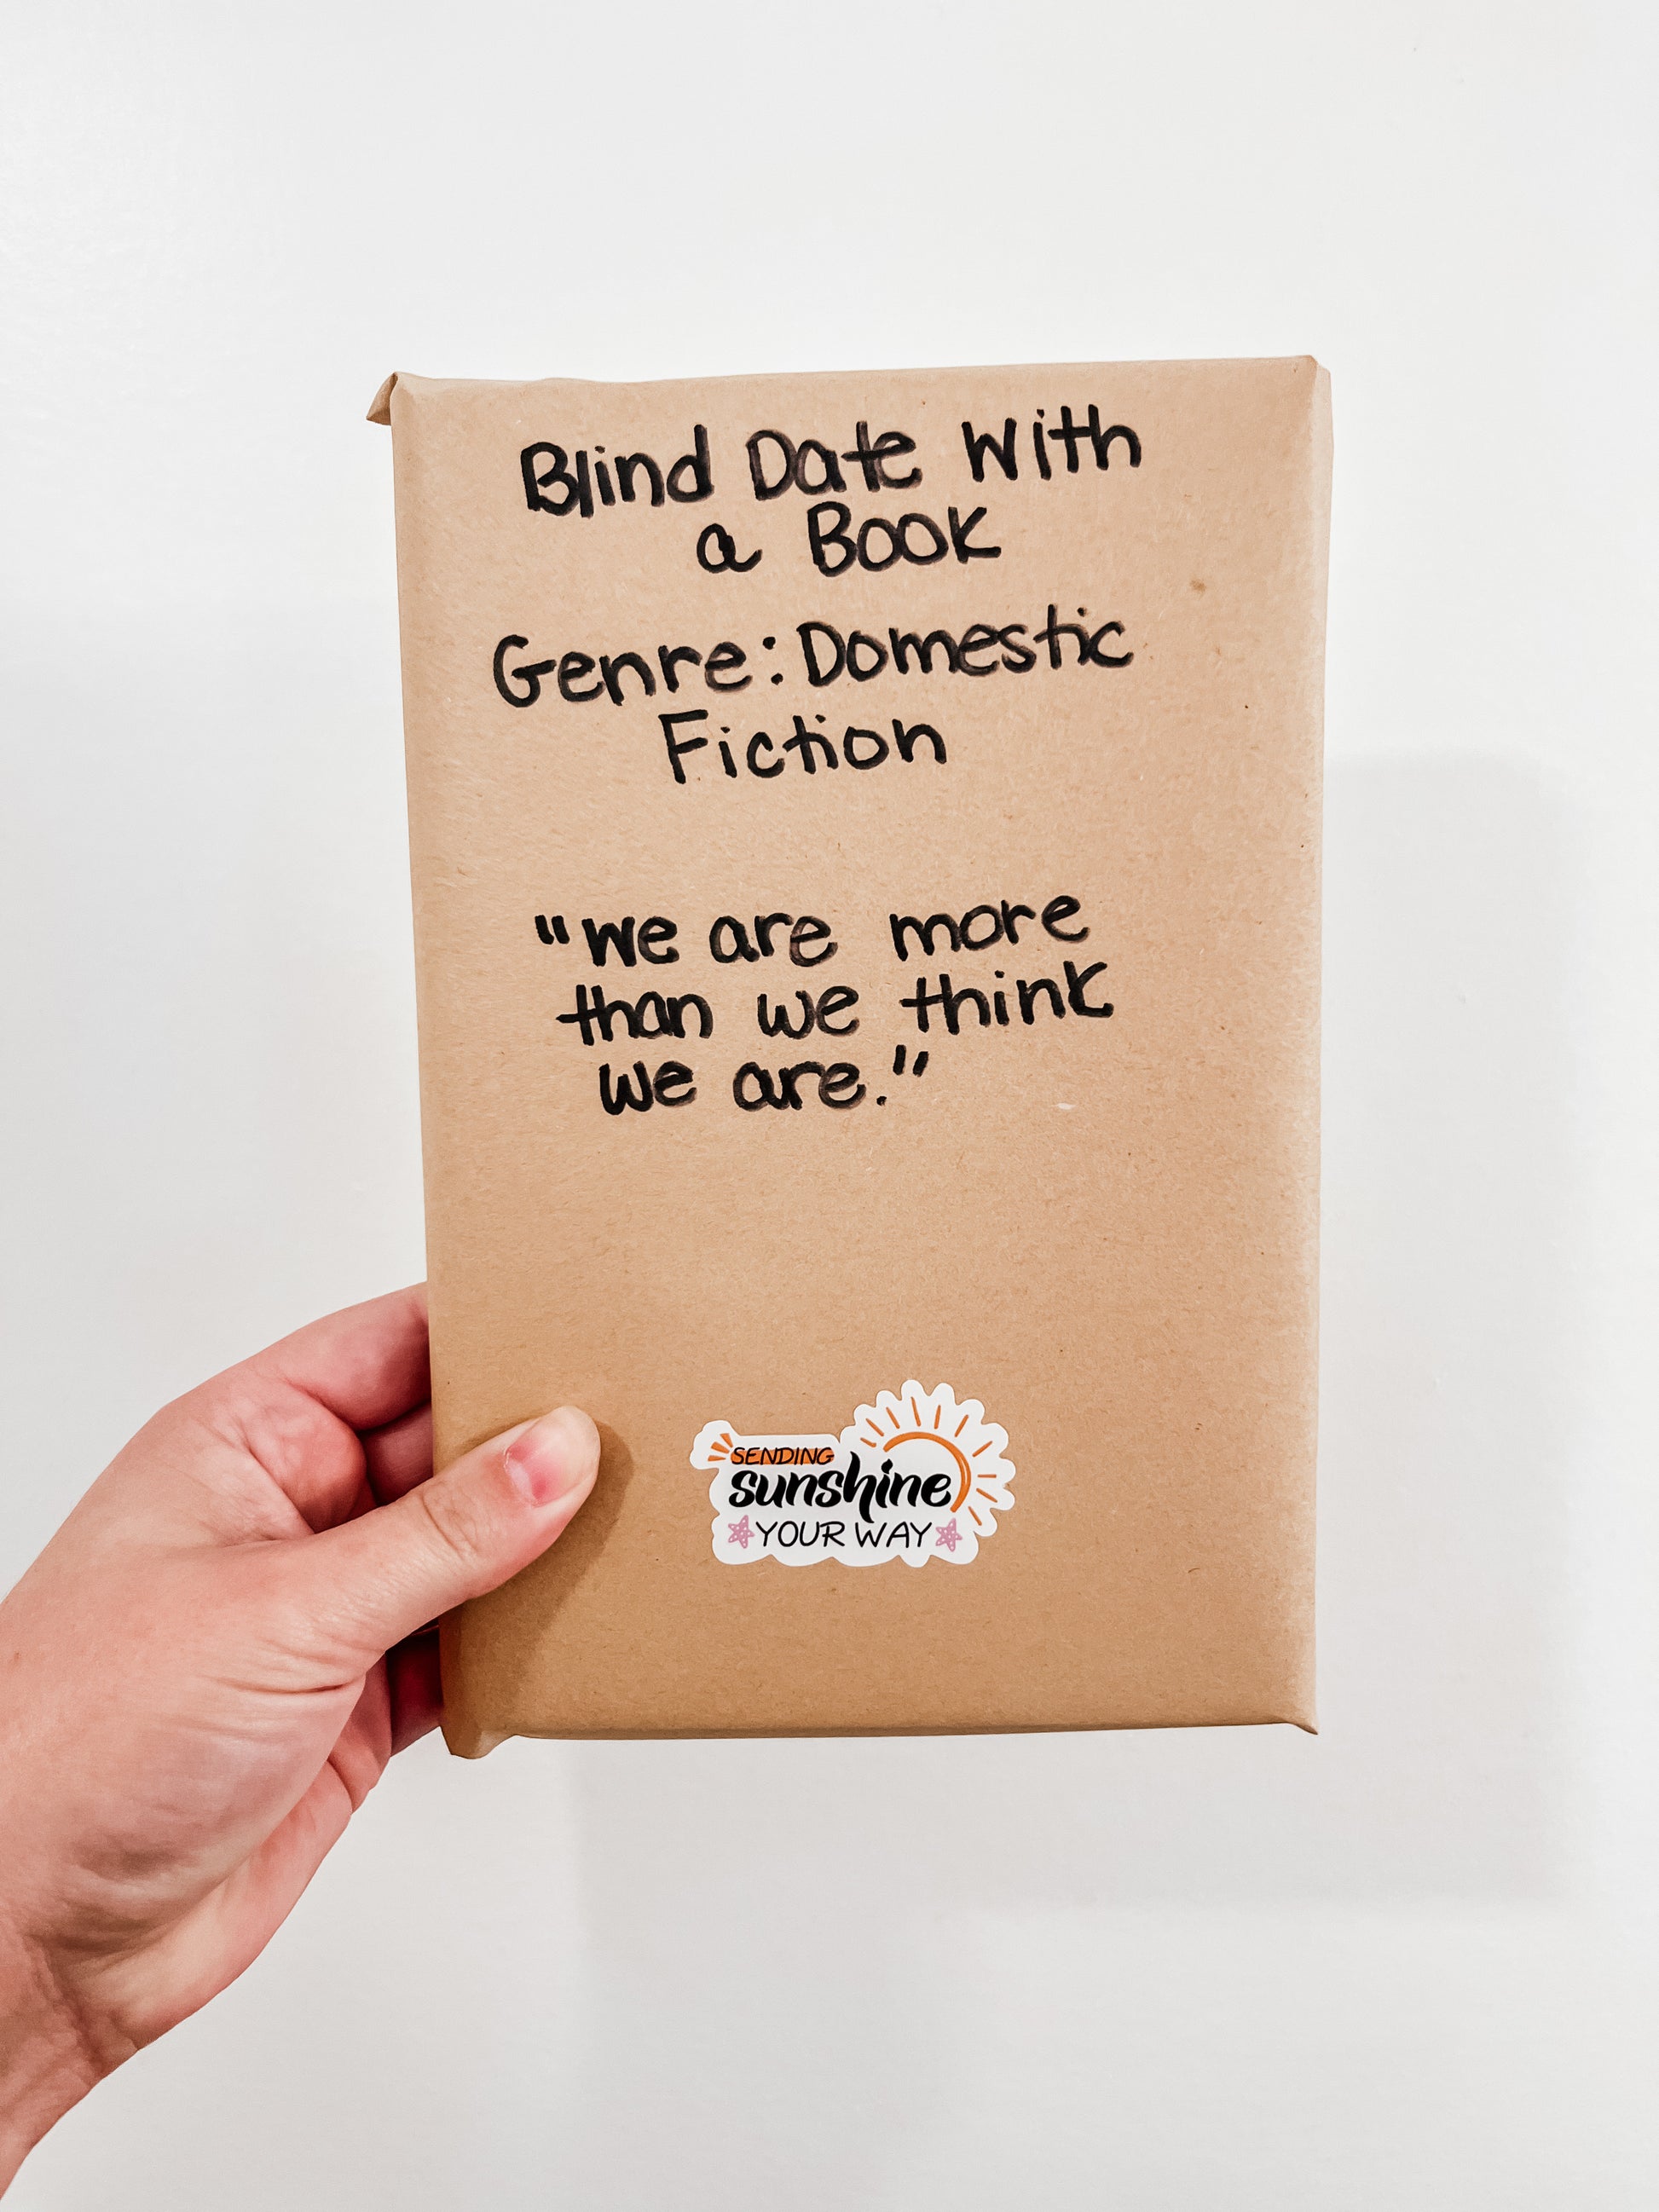 Blind Date With
a Book
Genre: Domestic
Fiction
"We are more
than we think
we are."
SENDING
sunshine
YOUR WAY